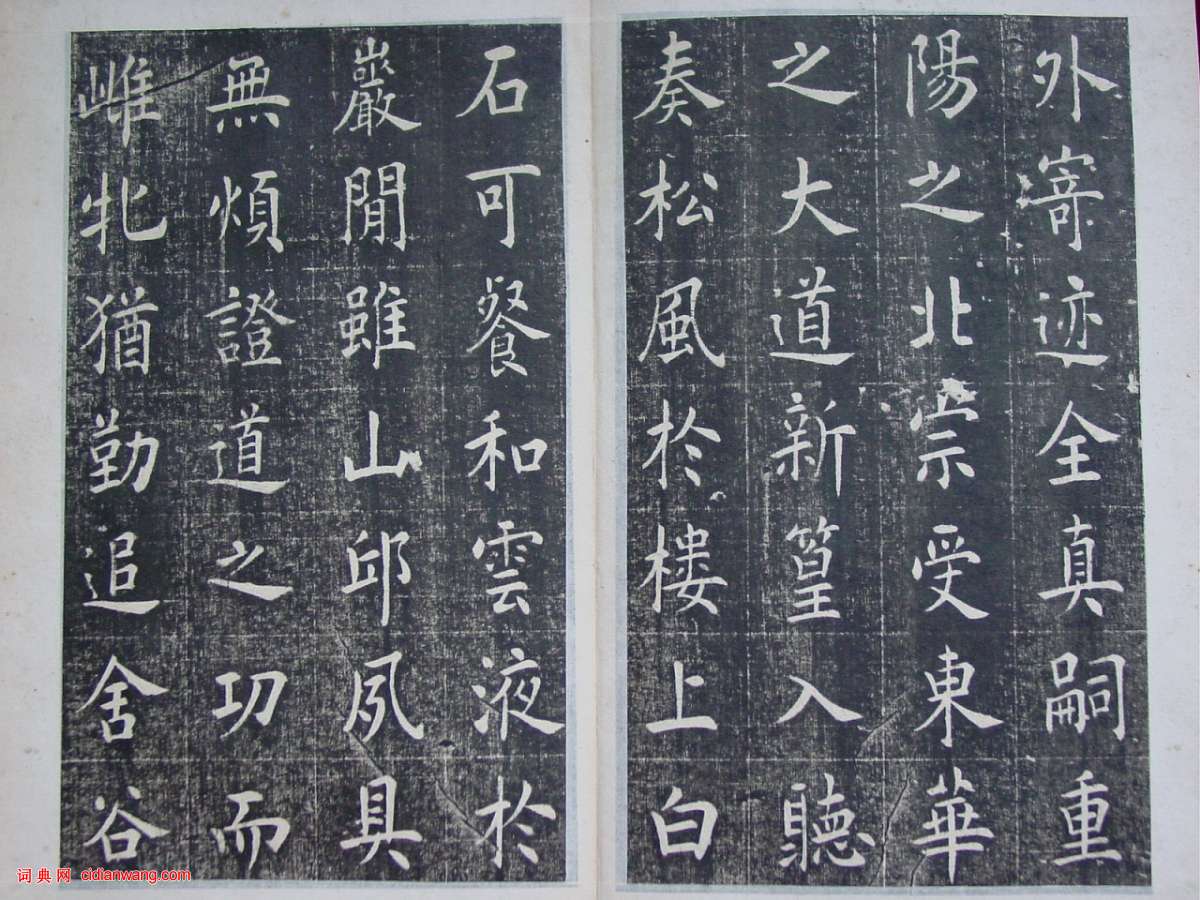 外寄迹全真嗣重
陽之北宗受東華
之大道新篁入聽
奏松風於樓上白
石可餐和雲液於
巖間雖山邱夙具
無煩證道之功而
雌牝猶勤追舍谷
词典网 cidianwang.com